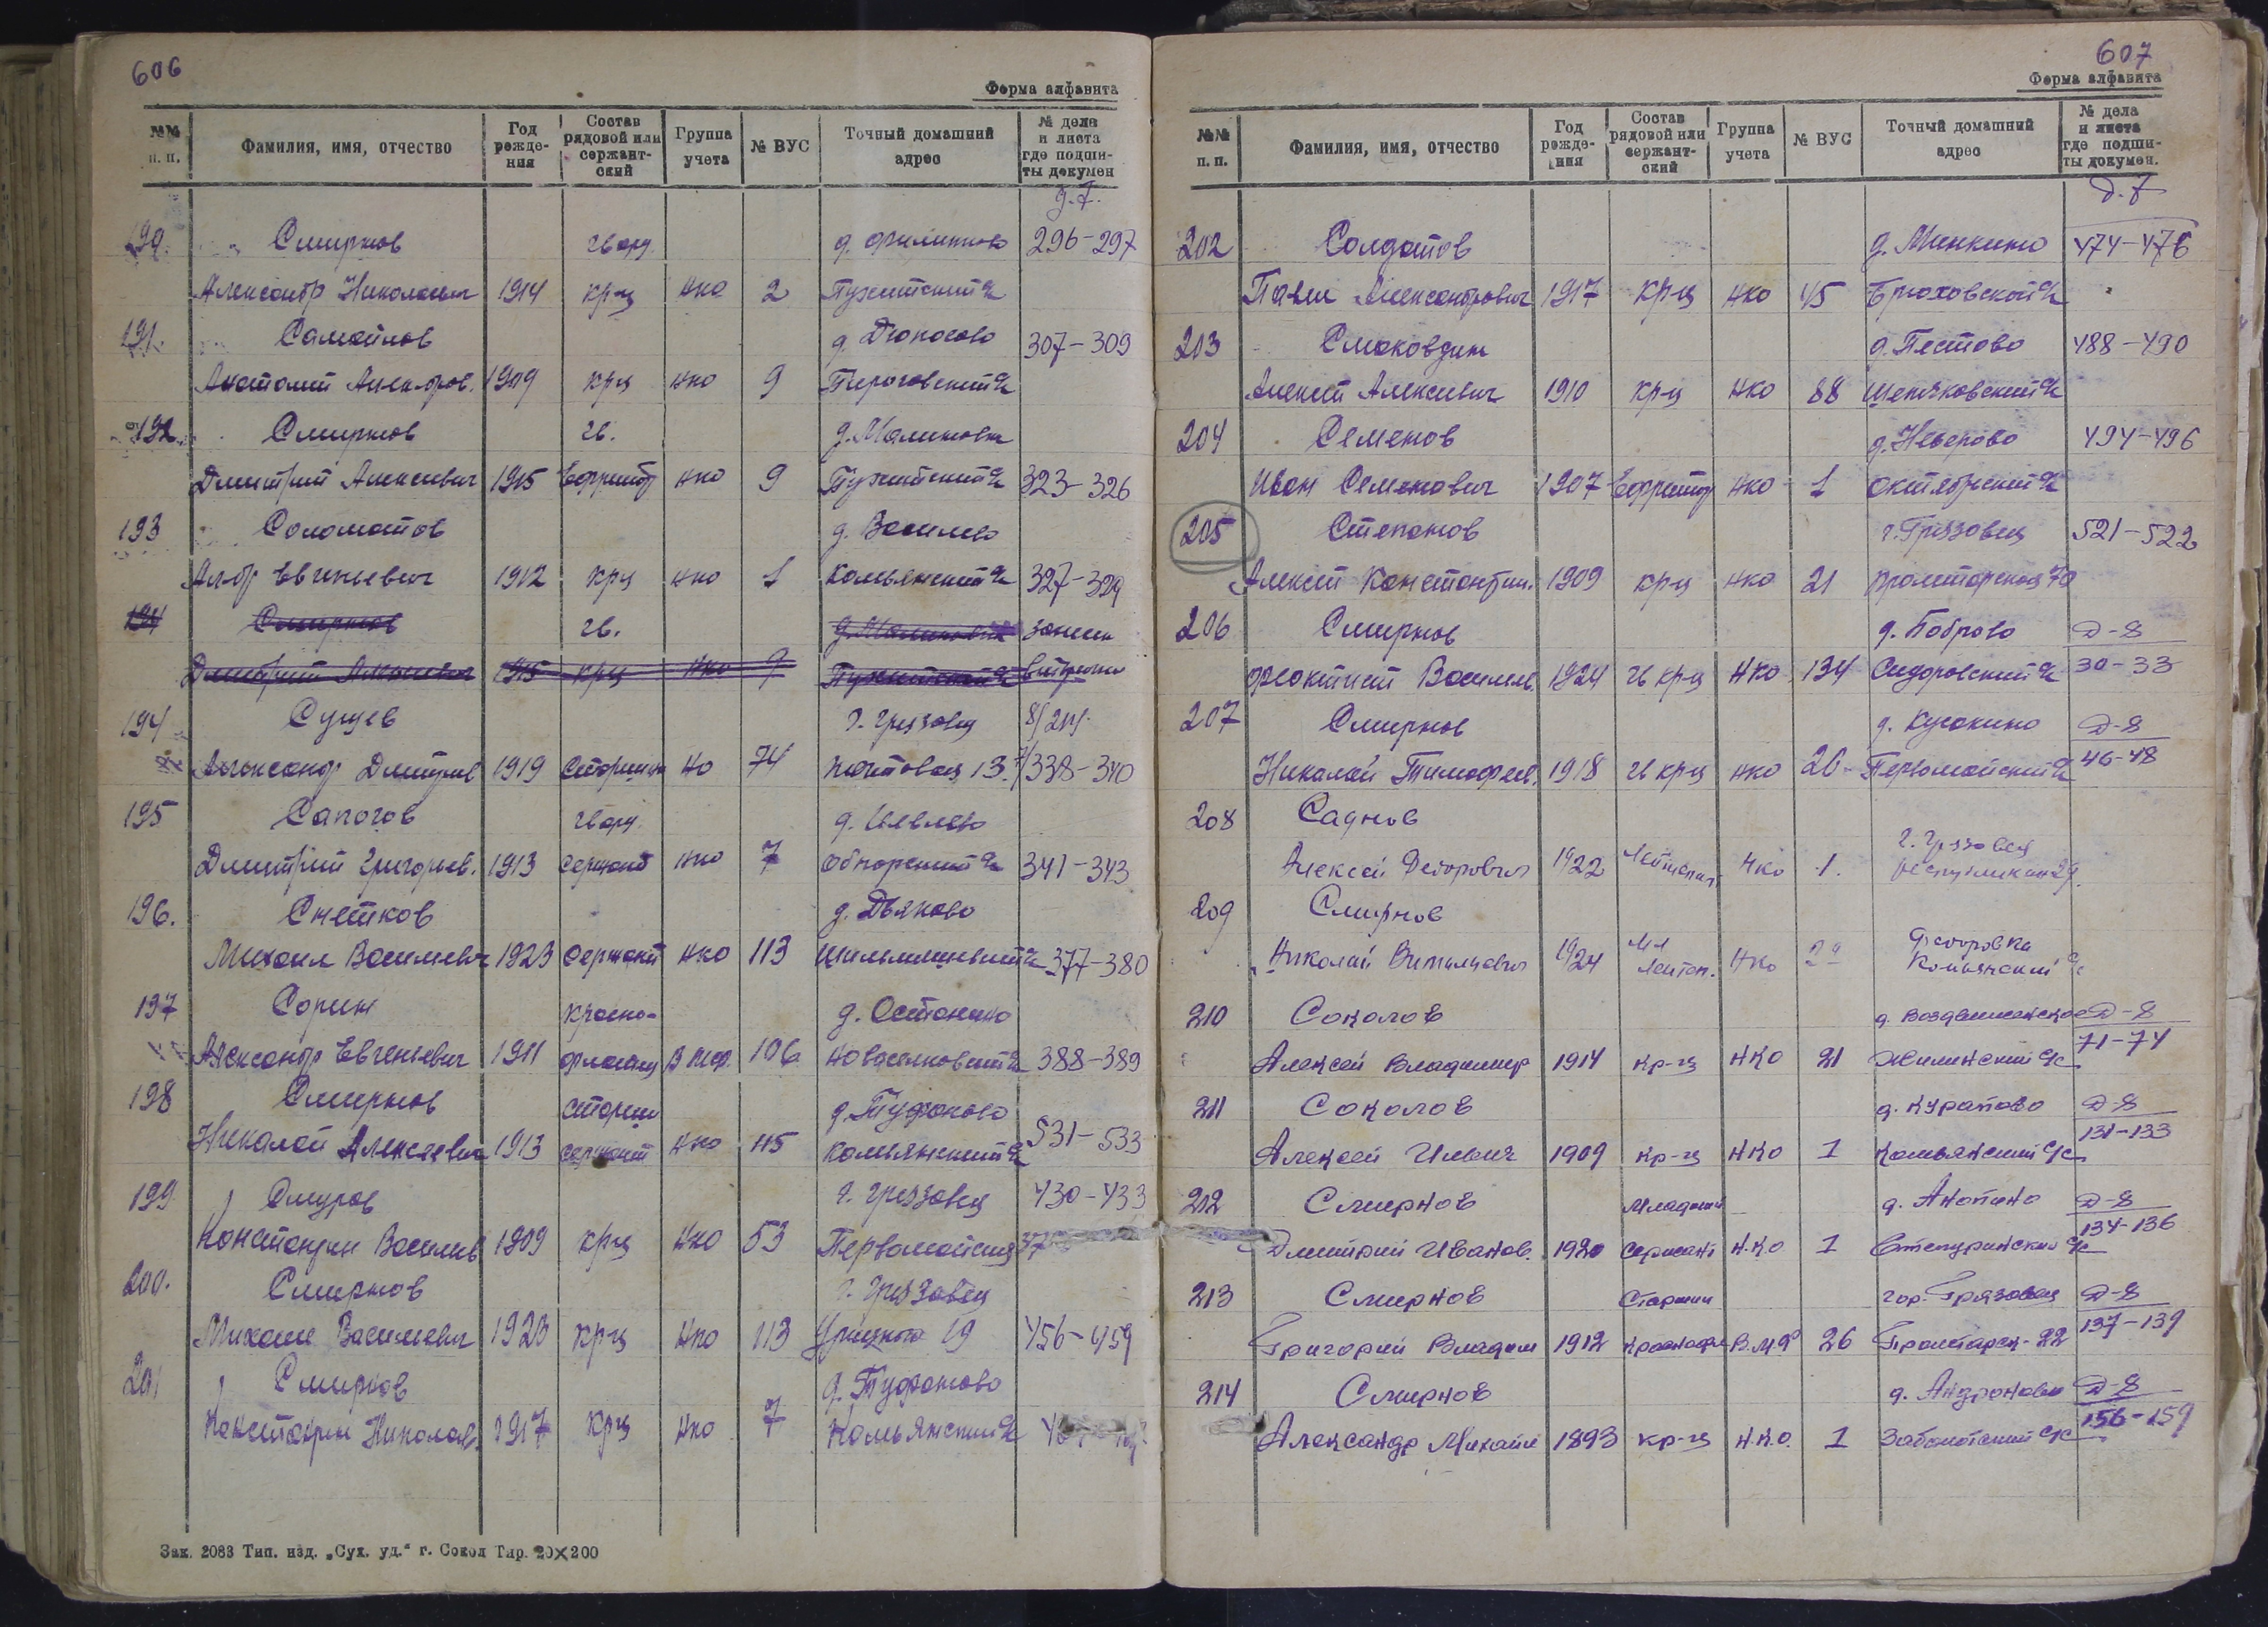 606
Форма алфавита
№№ п. п. Фамилия, имя, отчество Год рожде- ния Состав рядовой или сержант- ский Группа учета № ВУС Точный домашний адрес № дела и листа где подши- ты докумен
д. 7.
190. Смирнов гвард. д. Филипково 296-297
Александр Николаевич 1914 кр-ц нко 2
191. Самойлов 307-309
Анатолий 1909 крц нко 9
192. Смирнов гв. д. Малиновка
Дмитрий Алексеевич 1915 Ефрейтор нко 9 323-326
193 Соломатов д. Василево
Ал-др Евгеньевич 1912 крц нко 1 Комьянский с/с 327-329
194 Смирнов гв. д. Малиновка
Дмитрий Алексеевич 1915 крц нко 9
194 Сущев г. Грязовец
Александр Дмитриев 1919 74 Почтовая 13. 338-340
195 Сапогов гвард.
Дмитрий Григорьев. 1913 сержант нко 7 Обнорский с/с 341-343
196. Снетков д. Дьяково
Михаил Васильевич 1923 Сержант нко 113 377-380
197 Сорин красно- д. Останино
Александр Евгеньевич 1911 флотец 106 388-389
198 Смирнов старш д. Туфаново
Николай Алексеевич 1913 сержант нко 115 Комьянский с/с 531-533
199 Смуров г. Грязовец 430-433
Константин Василев 1909 крц нко 53 Первомайская
200. Смирнов г. Грязовец
Михаил Васильевич 1923 крц нко 113 Урицкого 19 456-459
201 Смирнов д. Туфаново
Константин Николаев. 1917 крц нко 7 Комьянский с/с
Зак. 2083 Тип. изд. „Сух. уд.“ г. Сокол Тир. 20×200
607
Форма алфавита
№№ п. п. Фамилия, имя, отчество Год рожде- ния Состав рядовой или сержант- ский Группа учета № ВУС Точный домашний адрес № дела и листа где подши- ты докумен.
д. 7
202 Солдатов д. Минкино 474-476
Павел Александрович 1917 кр-ц нко 45
203 Смоковдин д. Пестово 488-490
Алексей Алексеевич 1910 кр-ц нко 88
204 Семенов д. Неверово 494-496
Иван Семенович 1907 Ефрейтор нко 1 Октябрьский с/с
205 Степанов г. Грязовец 521-522
Алексей Константин. 1909 кр-ц нко 21 Пролетарская 70
206 Смирнов д. Боброво Д-8
Феоктист Василев. 1924 гв крц нко 134 Сидоровский с/с 30-33
207 Смирнов Д-8
Николай Тимофеев. 1918 гв крц нко 26 Первомайский с/с 46-48
208 Саднов
Алексей Федорович 1922 Лейтенант нко 1. г. Грязовец
209 Смирнов
Николай Витальевич 1924 Мл Лейтен. нко Федоровка Комьянский с/с
210 Соколов д. Воздвиженское Д-8
Алексей Владимир 1914 кр-ц нко 21 Жилинский с/с 71-74
211 Соколов д. Курапово Д-8
Алексей Ильич 1909 кр-ц нко 1 Комьянский с/с 131-133
212 Смирнов Младший д. Анопино Д-8
Дмитрий Иванов. 1920 сержант н.к.о 1 134-136
213 Смирнов Старшин гор. Грязовец Д-8
Григорий Владим 1912 В.М.Ф 26 Пролетарск-22 137-139
214 Смирнов д. Андроново Д-8
Александр Михайл 1893 кр-ц н.к.о. 1 156-159